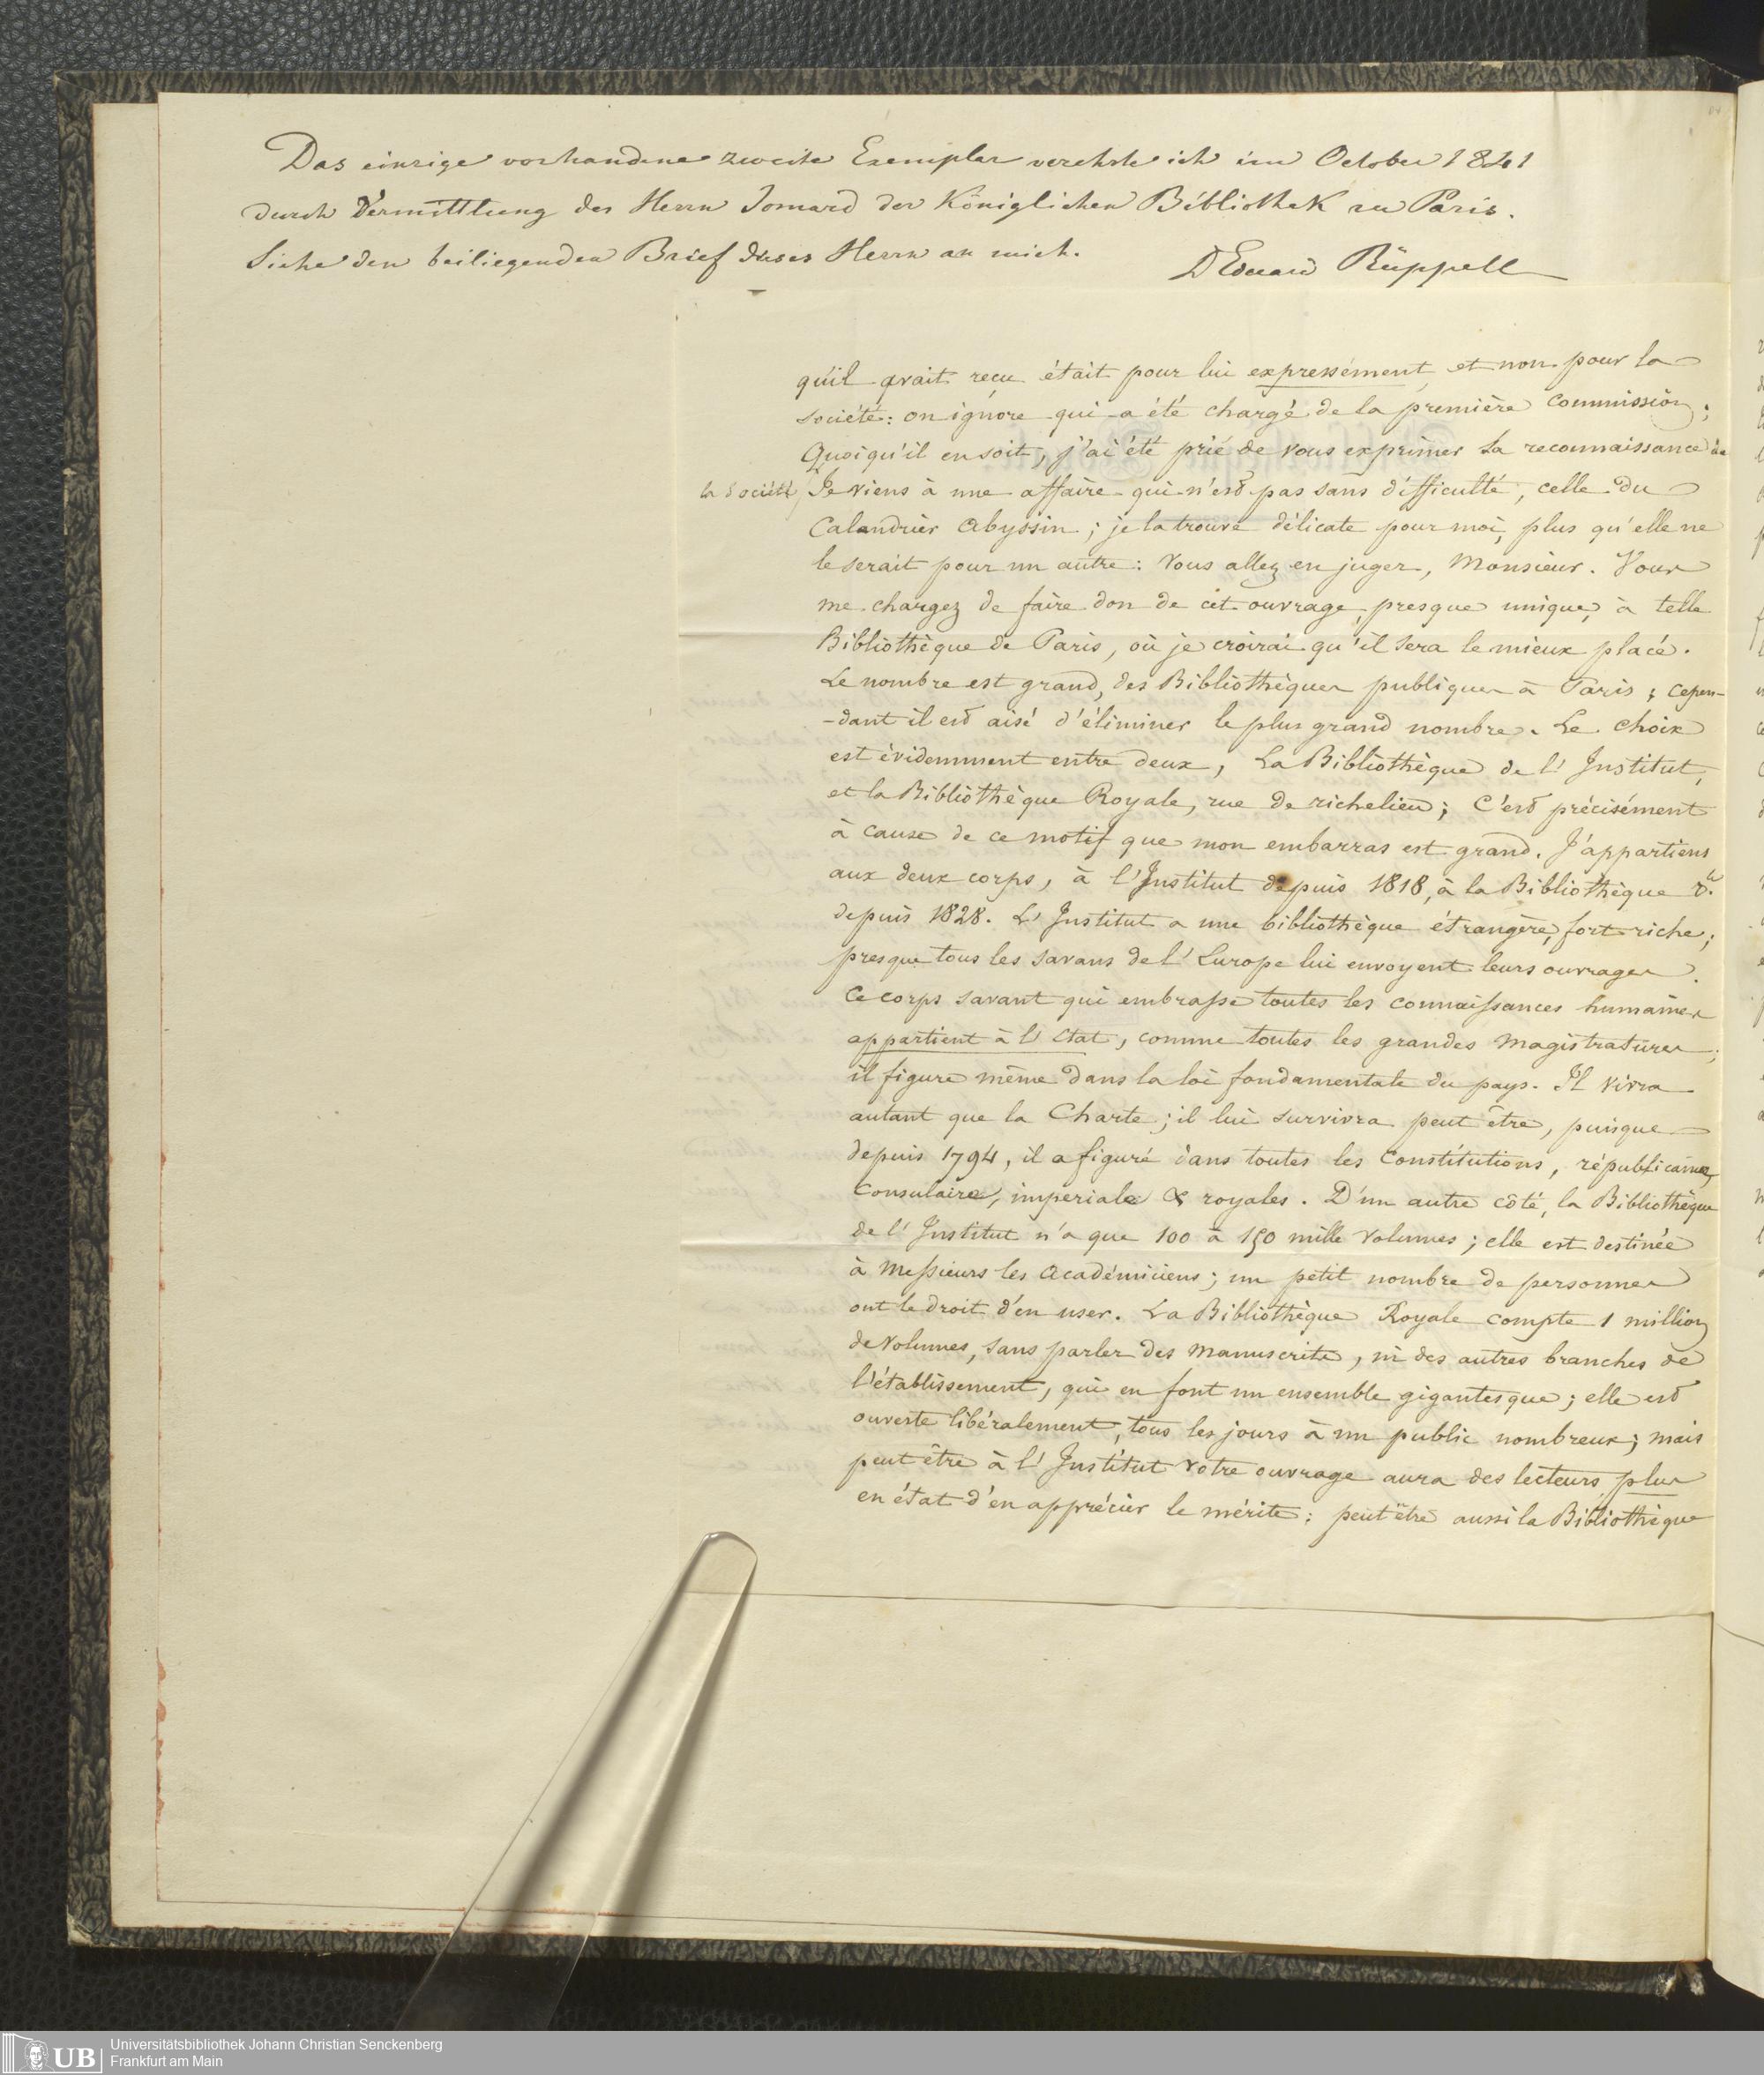 Das einzige vorhandene zweite Exemplar verehrte ich im October 1841
durch Vermittlung des Herrn Jomard der Königlichen Bibliothek zu Paris.
Siehe den beiliegenden Brief dieses Herrn an mich.
D Eduard Rüppell
qu'il avait reçu était pour lui expressément, et non pour la
société: on ignore qui a été chargé de la première Commission;
Quoiqu'il en soit, j'ai été prié de vous exprimer la reconnaissance de
la Société, Je viens à une affaire qui n'est pas sans difficulté, celle du
Calandrier Abyssin; je la trouve délicate pour moi, plus qu'elle ne
le serait pour un autre: Vous allez en juger, Monsieur. Vous
me chargez de faire don de cet ouvrage, presque unique, à telle
Bibliothèque de Paris, où je croirai qu'il sera le mieux placé.
Le nombre est grand, des Bibliothèques publiques à Paris; cepen-
-dant il est aisé d'éliminer le plus grand nombre. Le choix
est évidemment entre deux, La Bibliothèque de l'Institut,
et la Bibliothèque Royale, rue de richelieu; C'est précisément
à cause de ce motif que mon embarras est grand. J'appartiens
aux deux corps, à l'Institut depuis 1818, à la Bibliothèque
depuis 1828. L'Institut a une bibliothèque étrangère, fort riche;
presque tous les savans de l'Europe lui envoyent leurs ouvrages.
Ce corps savant qui embrasse toutes les connaissances humaines
appartient à l'Etat, comme toutes les grandes Magistratures;
il figure même dans la loi fondamentale du pays. Il vivra
autant que la Charte; il lui survivra peut être, puisque
depuis 1794, il a figuré dans toutes les Constitutions, républicaines,
Consulaire, imperiale & royales. D'un autre côté, la Bibliothèque
de l'Institut n'a que 100 à 150 mille volumes; elle est destinée
à Messieurs les Académiciens; un petit nombre de personnes
ont le droit d'en user. La Bibliothèque Royale compte 1 million
de Volumes, sans parler des Manuscrits, ni des autres branches de
l'établissement, qui en font un ensemble gigantesque; elle est
ouverte libéralement, tous les jours à un public nombreux; mais
peut être à l'Institut votre ouvrage aura des lecteurs plus
en état d'en apprécier le mérite: peut être aussi la Bibliothèque
UB Universitätsbibliothek Johann Christian Senckenberg
Frankfurt am Main